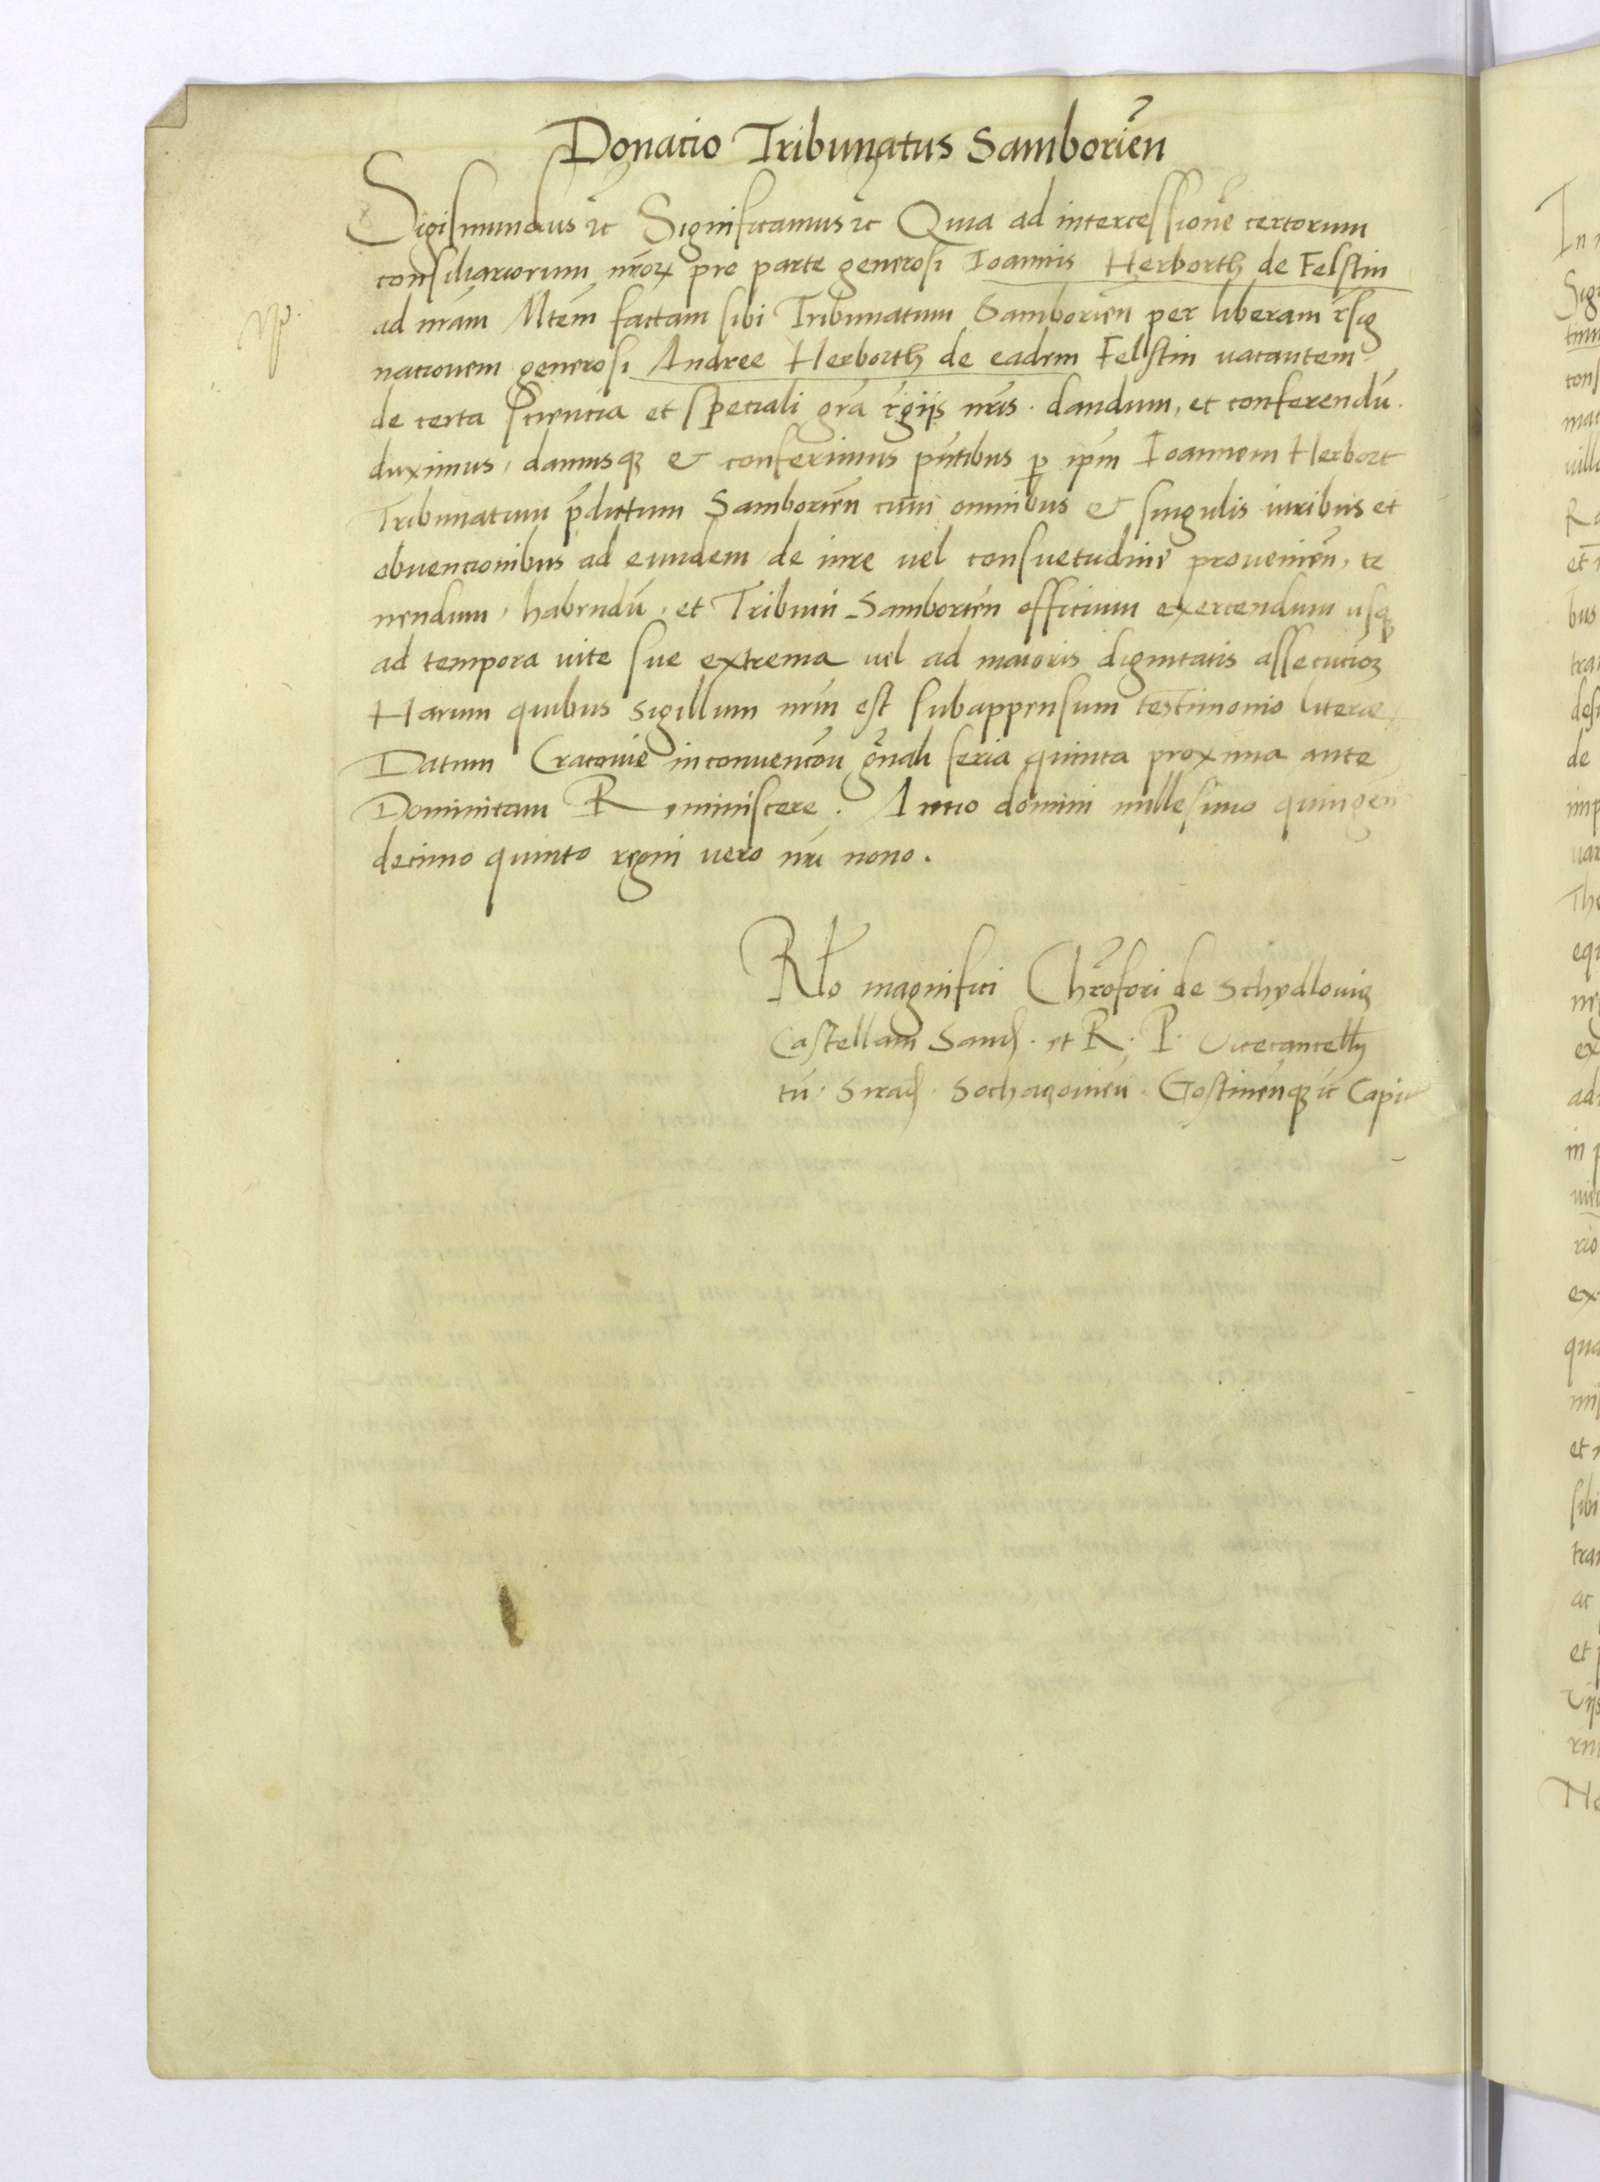 Donatio Tribunatus Samborień
Sigismundus ꝛc Significamus ꝛc Quia ad intercessionē certorum
consiliariorum nr̄orꝝ pro parte generosi Ioannis Herborth de Felstin
ad nrām Mtēm factam sibi Tribunatum Samborien per liberam resig
nationem generosi Andree Herborth de eadem Felstin vacantem
de certa scientia et speciali grā rēgijs nrīs . dandum, et conferendū
duximus, damusqꝫ & conferimus pn̄tibus ꝑ ip̄m Ioannem Herbort
Tribunatum p̄dictum Samborień cum omnibus & singulis iuribus et
obventionibus ad eundem de iure vel consuetudine provenień, te
nendum, habendū, et Tribuni Samborień officium exercendum usqꝫ
ad tempora vite sue extrema vel ad maioris dignitatis assecutioꝫ
Harum quibus sigillum nrm̄ est subappensum testimonio literar
Datum Cracovie in conventōn gn̄ali feria quinta proxima ante
Dominicam Reminiscere . Anno domini millesimo quingen
decimo quinto regni vero nrī nono .
Rlo magnifici Chrōfori de Schydloviecz
Castellani Sand . et R . P . Vicecancell
tū . Sirad . Sochaczovień . Gostinēnqꝫ ꝛc Capi